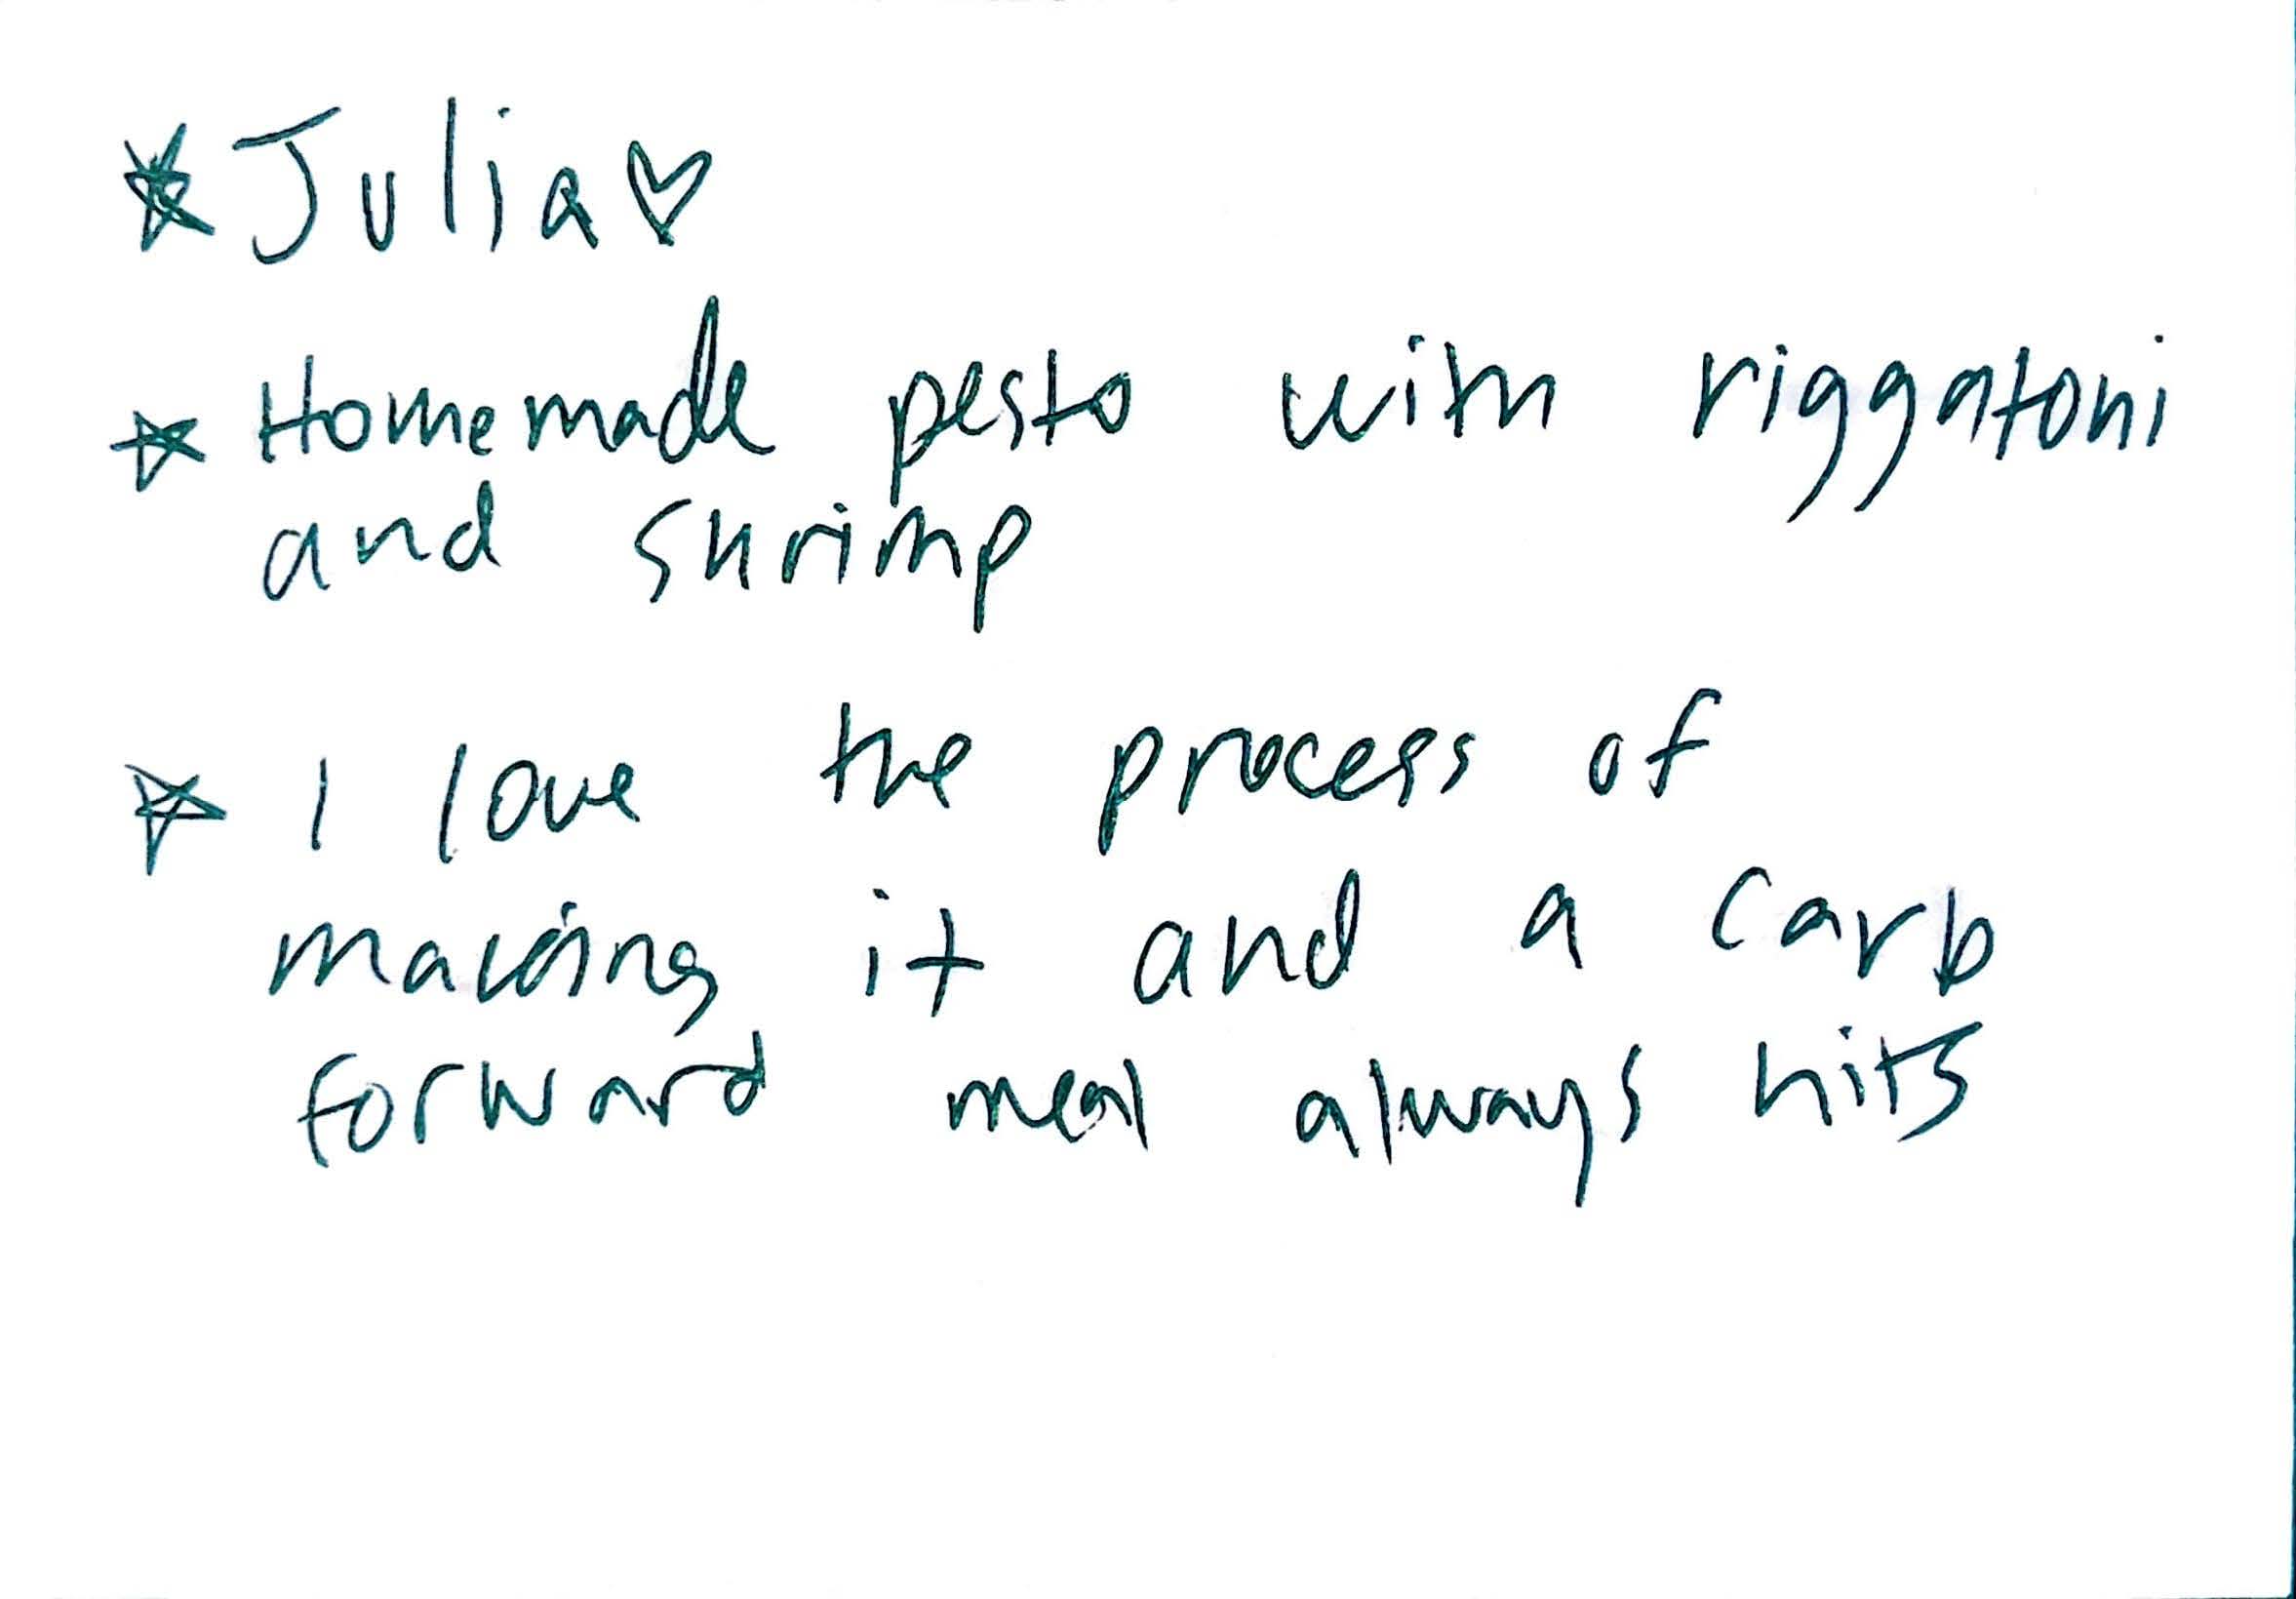 ☆ Julia ♡
☆ Homemade pesto with riggatoni
and shrimp
☆ I love the process of
making it and a carb
forward meal always hits